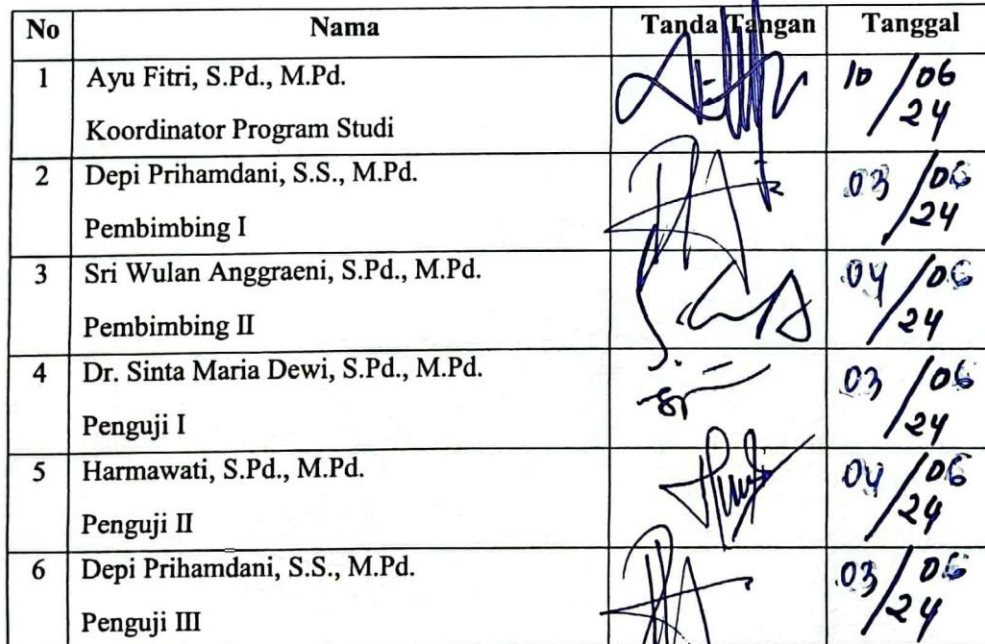 No Nama Tanda Tangan Tanggal
1 Ayu Fitri, S.Pd., M.Pd. 10/06
Koordinator Program Studi 24
2 Depi Prihamdani, S.S., M.Pd. 03/06
Pembimbing I 24
3 Sri Wulan Anggraeni, S.Pd., M.Pd. 04/06
Pembimbing II 24
4 Dr. Sinta Maria Dewi, S.Pd., M.Pd. 03/06
Penguji I 24
5 Harmawati, S.Pd., M.Pd. 04/06
Penguji II 24
6 Depi Prihamdani, S.S., M.Pd. 03/06
Penguji III 24